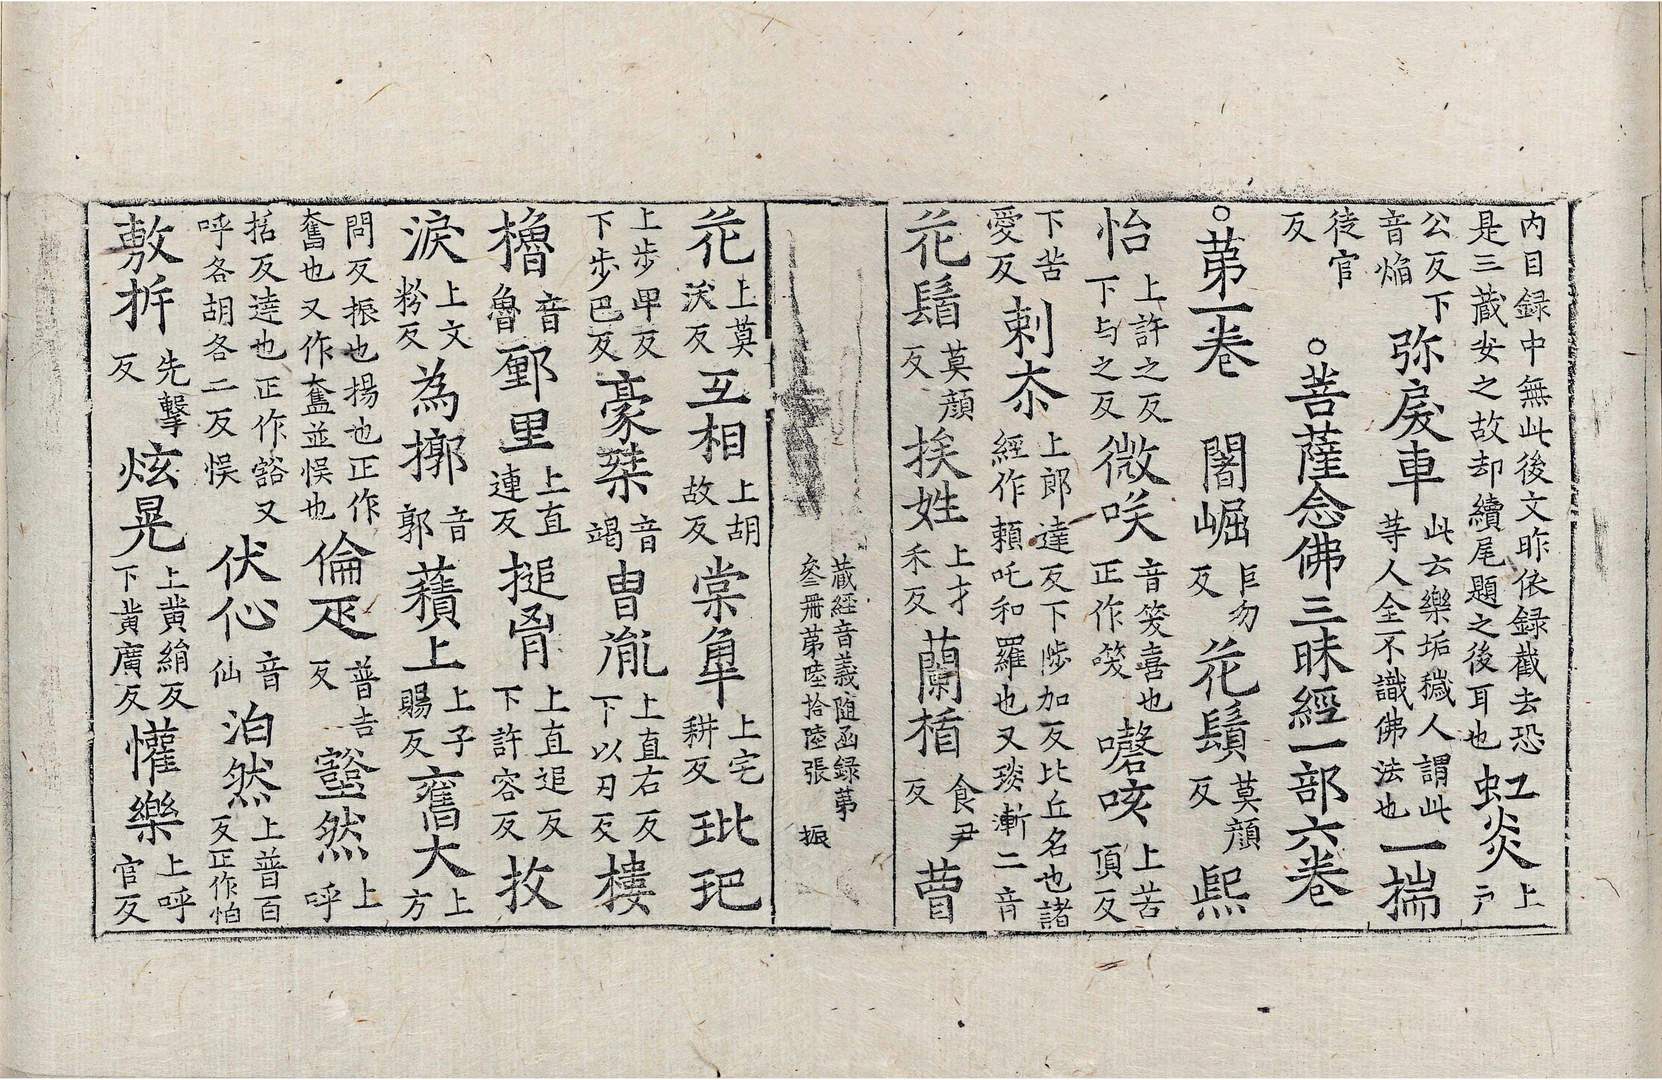 内目録中無此後文昨依録截去恐是三蔵安之故却續尾題之後耳也虹炎上戸
公反下音焔弥戾車此云樂垢穢人謂此等人全不識佛法也一揣
徒官反○菩薩念佛三昧經一部六卷
○苐一卷闍崛巨勿反花鬚莫顔反熙
怡上許之反下与之反微咲音笑喜也正作𥬇謦咳上苦頂反
下苦愛反剌上郎達反下陟加反比丘名也諸經作頼吒和羅也又琰漸二音
花鬘莫顔反挨姓上才禾反蘭楯食尹反瞢
蔵經音義随函録苐
叅冊苐陸拾陸張 振
花上莫洑反互相上胡故反棠上宅耕反玭玘
上步畀反下步巴反豪桀音竭胄胤上直右反下以刃反樓
櫓音魯鄽里上直連反搥胷上直追反下許容反抆
淚上文粉反為㨯音郭積上上子賜反奮大上方
問反振也揚也正作奮也又作奞並悮也倫疋普吉反豁然上呼
括反達也正作豁又呼各胡各二反悮伏仚音仙泊然上普百反正作怕
敷折先擊反炫晃上黄絹反下黄廣反懽樂上呼官反